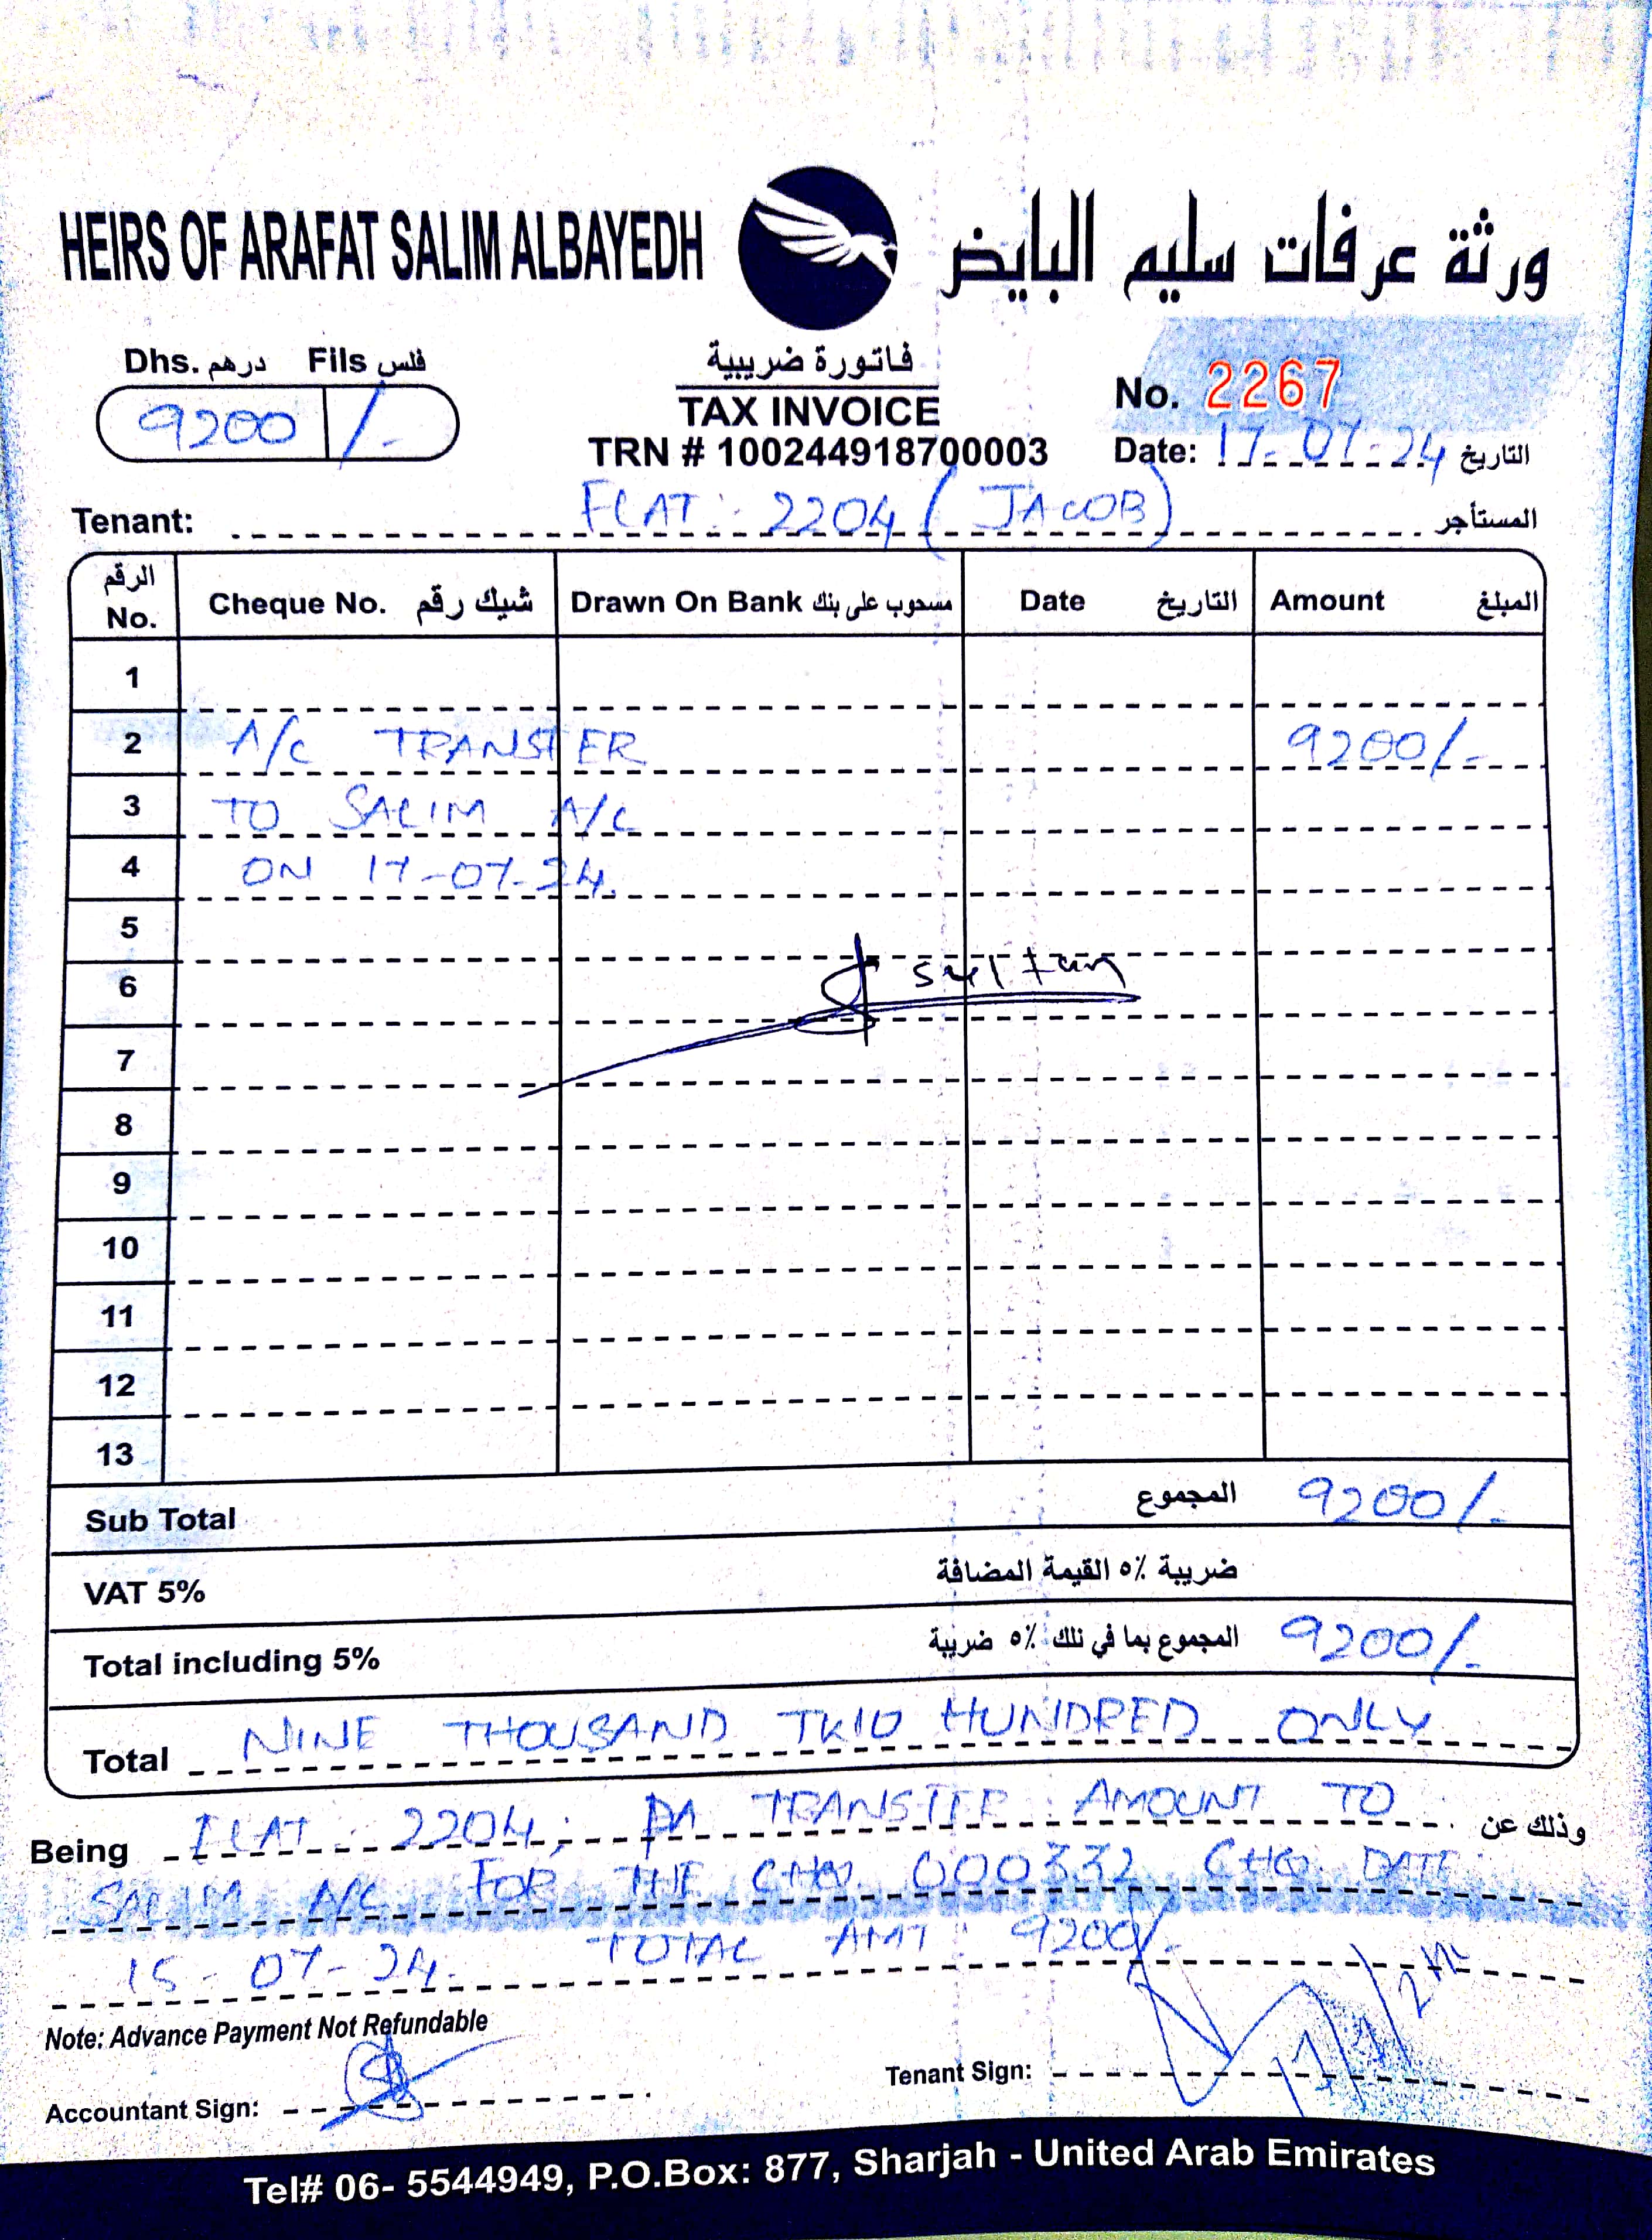 HEIRS OF ARAFAT SALIM ALBAYEDH ورثة عرفات سليم البايض
Dhs. درهم Fils فلس
9200 /-
فاتورة ضريبية
TAX INVOICE
TRN # 100244918700003
No. 2267
Date: 17-07-24 التاريخ
Tenant: FLAT: 2204 (JACOB) المستأجر
الرقم No. Cheque No. شيك رقم Drawn On Bank مسحوب على بنك Date التاريخ Amount المبلغ
1
2 A/C TRANSFER 9200/-
3 TO SALIM A/C
4 ON 17-07-24.
5
6 sultan
7
8
9
10
11
12
13
Sub Total المجموع 9200/-
VAT 5% ضريبة ٥٪ القيمة المضافة
Total including 5% المجموع بما في ذلك ٥٪ ضريبة 9200/-
Total NINE THOUSAND TWO HUNDRED ONLY
Being FLAT: 2204; TRANSFER AMOUNT TO وذلك عن
SALIM A/C FOR THE CHQ. 000332 CHQ. DATE:
15-07-24. TOTAL AMT: 9200/-
Note: Advance Payment Not Refundable
Accountant Sign:
Tenant Sign: 17/7/24
Tel# 06- 5544949, P.O.Box: 877, Sharjah - United Arab Emirates